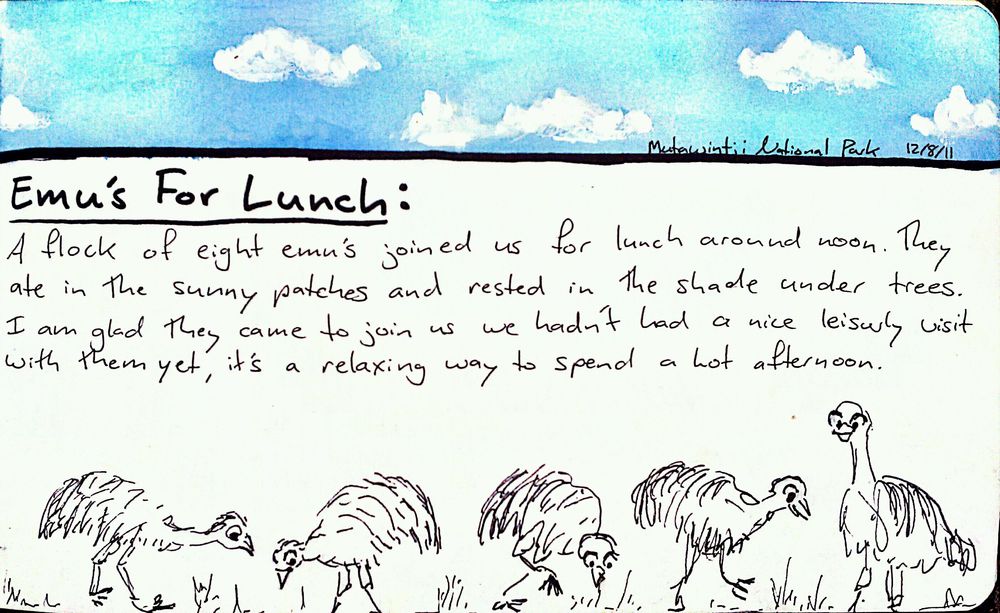 Mutawintji National Park 12/8/11
Emu's For Lunch:
A flock of eight emu's joined us for lunch around noon. They
ate in the sunny patches and rested in the shade under trees.
I am glad they came to join us we hadn't had a nice leisurly visit
with them yet, it's a relaxing way to spend a hot afternoon.